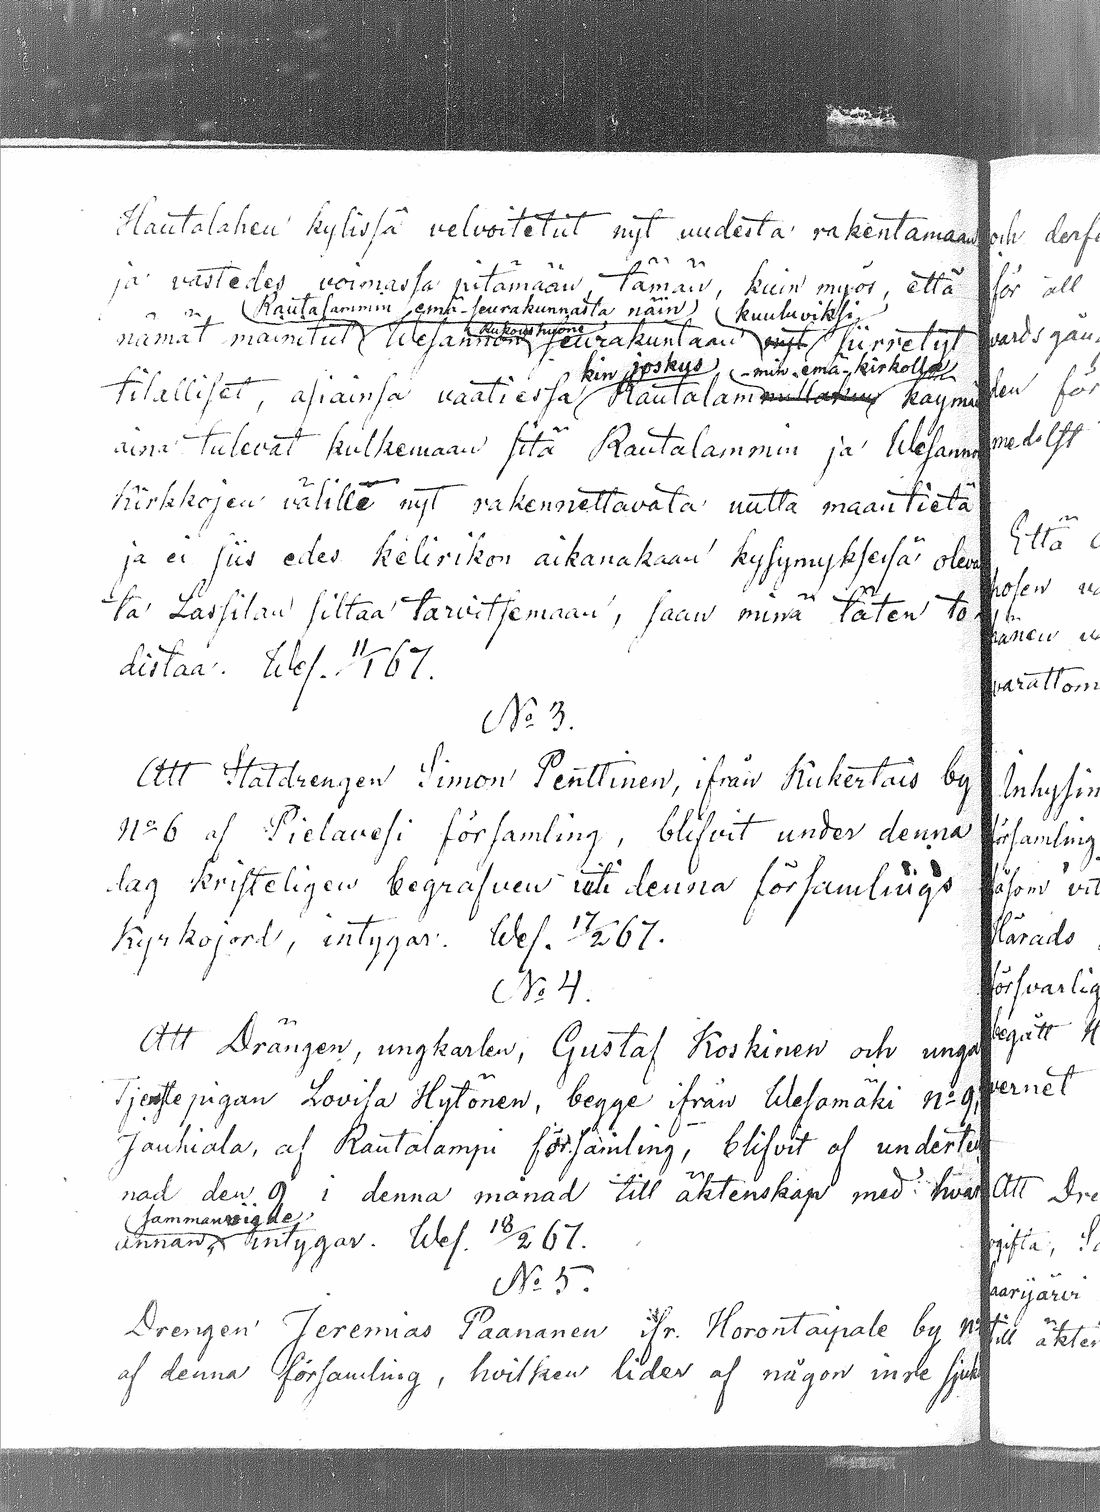 Hautalahen kylissä velvoitetut nyt uudesta rakentamaan
ja vastedes voimassa pitämään, tämän, kuin myös, että
Rautalammin emä-seurakunnasta näin kuuluviksi
nämät mainitut Wesannon rukoushuone seurakuntaan nyt siirretyt
kin joskus min emä-kirkolla
tilalliset, asiainsa vaatiessa Rautalam käymään
aina tulevat kulkemaan sitä Rautalammin ja Wesannon
Kirkkojen välille nyt rakennettavata uutta maantietä
ja ei siis edes kelirikon aikanakaan kysymyksessä oleva
ta Lassilan siltaa tarvitsemaan, saan minä täten to
distaa. Wes. 11/1 67.
No 3.
Att Statdrengen Simon Penttinen, ifrån Kukertais by
No 6 af Pielavesi församling, blifvit under denna
dag kristeligen begrafven uti denna församlings
Kyrkojord, intygar. Wes. 17/2 67.
No 4.
Att Drängen, ungkarlen, Gustaf Koskinen och unga
Tjenstepigan Lovisa Hytönen, begge ifrån Wesamäki No 9,
Jauhiala, af Rautalampi församling, blifvit af underteck
nad den 9 i denna månad till äktenskap med hvar
sammanvigde
annan, intygar. Wes. 18/2 67.
No 5.
Drengen Jeremias Paananen ifr. Horontaipale by No
af denna församling, hvilken lider af någon inre sjuk
och derf
för all
vards gån
den för
medelst
Että
hosen
hänen
varattom
Inhysin
församling
såsom vit
Härads
försvarlig
begått
vernet
Att Dre
ogifta, S
aarijärvi
till äkten